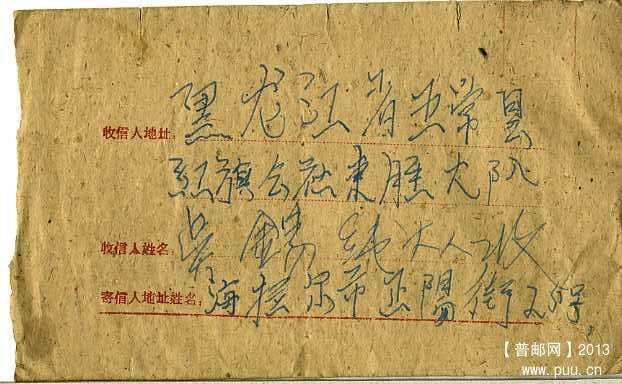 收信人地址: 黑龙江省五常县
红旗公社東勝大队
收信人姓名: 吴錫纯大人收
寄信人地址姓名: 海拉尔市正陽街
【普邮网】2013
www.puu.cn